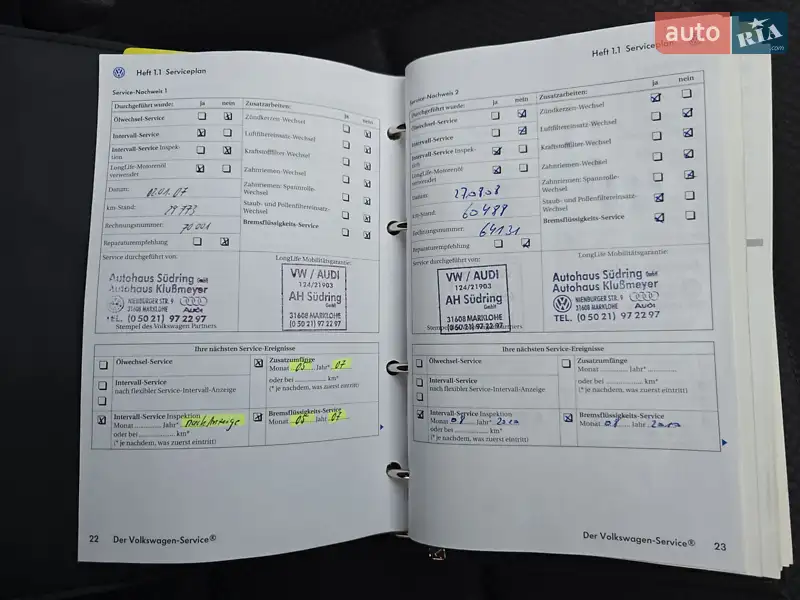 auto RIA .com
Heft 1.1 Serviceplan
Service-Nachweis 1
Durchgeführt wurde: ja nein
Ölwechsel-Service
Intervall-Service
Intervall-Service Inspek-
tion
LongLife-Motorenöl
verwendet
Datum: 02.01.07
km-Stand: 29773
Rechnungsnummer: 70001
Reparaturempfehlung
Zusatzarbeiten: ja nein
Zündkerzen-Wechsel
Luftfiltereinsatz-Wechsel
Kraftstofffilter-Wechsel
Zahnriemen-Wechsel
Zahnriemen: Spannrolle-
Wechsel
Staub- und Pollenfiltereinsatz-
Wechsel
Bremsflüssigkeits-Service
Service durchgeführt von:
Autohaus Südring GmbH
Autohaus Klußmeyer
NIENBURGER STR. 9
31608 MARKLOHE Audi
TEL. (0 50 21) 97 22 97
Stempel des Volkswagen Partners
LongLife Mobilitätsgarantie:
VW / AUDI
124/21903
AH Südring
GmbH
31608 MARKLOHE
(0 50 21) 97 22 97
Ihre nächsten Service-Ereignisse
Ölwechsel-Service
Intervall-Service
nach flexibler Service-Intervall-Anzeige
Intervall-Service Inspektion
Monat Jahr* nach Anzeige
oder bei km*
(* je nachdem, was zuerst eintritt)
Zusatzumfänge
Monat 05 Jahr* 07
oder bei km*
(* je nachdem, was zuerst eintritt)
Bremsflüssigkeits-Service
Monat 05 Jahr 07
22 Der Volkswagen-Service®
Heft 1.1 Serviceplan
Service-Nachweis 2
Durchgeführt wurde: ja nein
Ölwechsel-Service
Intervall-Service
Intervall-Service Inspek-
tion
LongLife-Motorenöl
verwendet
Datum: 270808
km-Stand: 60488
Rechnungsnummer: 64131
Reparaturempfehlung
Zusatzarbeiten: ja nein
Zündkerzen-Wechsel
Luftfiltereinsatz-Wechsel
Kraftstofffilter-Wechsel
Zahnriemen-Wechsel
Zahnriemen: Spannrolle-
Wechsel
Staub- und Pollenfiltereinsatz-
Wechsel
Bremsflüssigkeits-Service
Service durchgeführt von:
VW / AUDI
124/21903
AH Südring
GmbH
31608 MARKLOHE
(0 50 21) 97 22 97
LongLife Mobilitätsgarantie:
Autohaus Südring GmbH
Autohaus Klußmeyer
NIENBURGER STR. 9
31608 MARKLOHE Audi
TEL. (0 50 21) 97 22 97
Ihre nächsten Service-Ereignisse
Ölwechsel-Service
Intervall-Service
nach flexibler Service-Intervall-Anzeige
Intervall-Service Inspektion
Monat 08 Jahr* 2010
oder bei km*
(* je nachdem, was zuerst eintritt)
Zusatzumfänge
Monat Jahr*
oder bei km*
(* je nachdem, was zuerst eintritt)
Bremsflüssigkeits-Service
Monat 08 Jahr 2010
Der Volkswagen-Service® 23